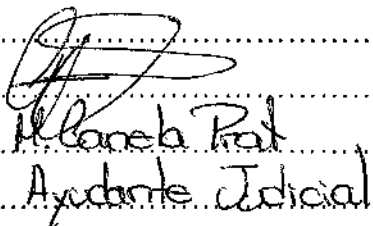 M. Canela Prat
Ayudante Judicial